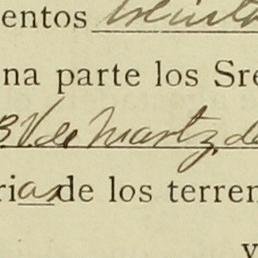 entos treinta
na parte los Sre
B V de Martz de
rias de los terren
y